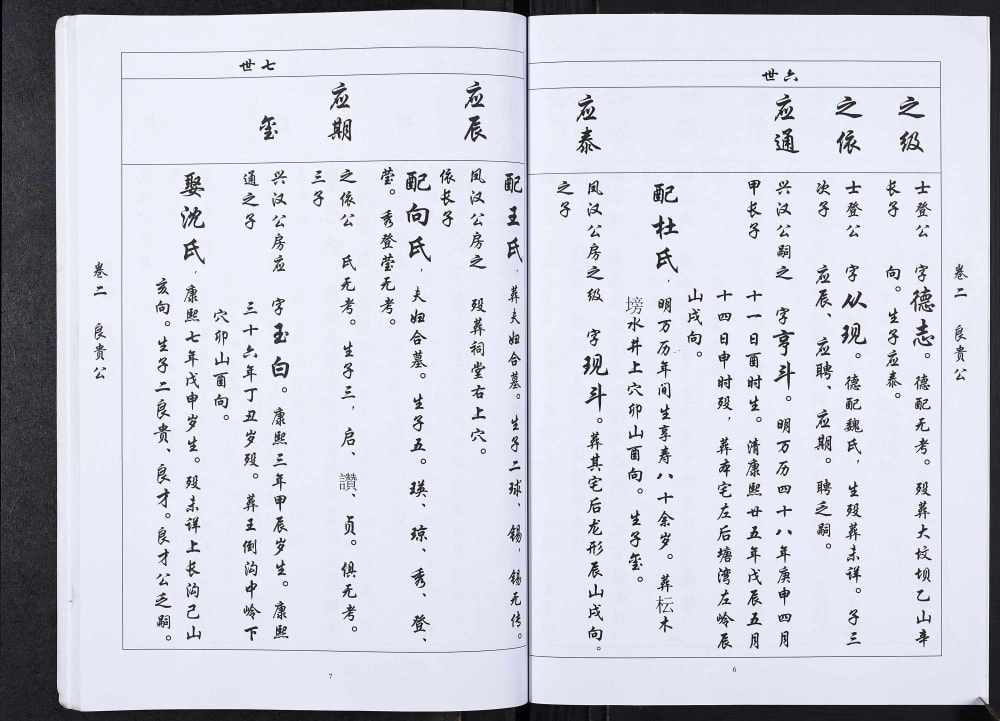 卷二 良贵公
六世
之级
士登公长子
字德志。德配无考。殁葬大坟坝乙山辛
向。生子应泰。
之依
士登公次子
字从现。德配魏氏，生殁葬未详。子三
应辰、应聘、应期。聘乏嗣。
应通
兴汉公嗣之甲长子
字亨斗。明万历四十八年庚申四月
十一日酉时生。清康熙廿五年戊辰五月
十四日申时殁，葬本宅左后塘湾左岭辰
山戌向。
配杜氏，明万历年间生享寿八十余岁。葬枟木
塝水井上穴卯山酉向。生子玺。
应泰
凤汉公房之级之子
字现斗。葬其宅后龙形辰山戌向。
6
七世
配王氏，葬夫妇合墓。生子二球、锡，锡无传。
应辰
凤汉公房之依长子
殁葬祠堂右上穴。
配向氏，夫妇合墓。生子五。瑛、琼、秀、登、
莹。秀登莹无考。
应期
之依公三子
氏无考。生子三，启、讚、贞。俱无考。
玺
兴汉公房应通之子
字玉白。康熙三年甲辰岁生。康熙
三十六年丁丑岁殁。葬王倒沟中岭下
穴卯山酉向。
娶沈氏，康熙七年戊申岁生。殁未详上长沟己山
亥向。生子二良贵、良才。良才公乏嗣。
卷二 良贵公
7